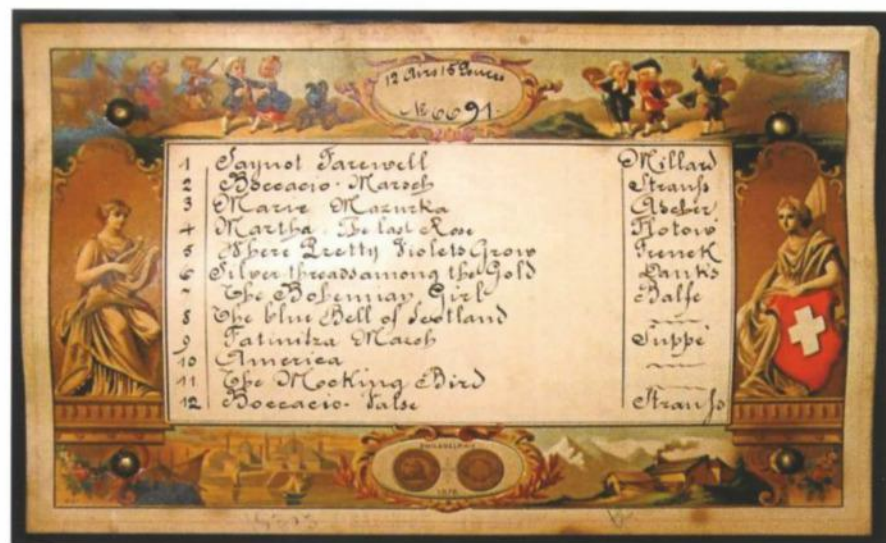 12 Airs 15 Pouces
№ 6691.
1 Saynot Farewell Millard
2 Boccacio. Marsch Strauſs
3 Marie Mazurka Ascher
4 Martha. The last Rose Flotow
5 Where Pretty Violets Grow
6 Silver threads among the Gold Danks
7 The Bohemian Girl Balfe
8 The blue Bell of Scotland
9 Fatinitza March Suppé
10 America
11 The Mocking Bird
12 Boccacio. Valse Strauſs
PHILADELPHIA
1876